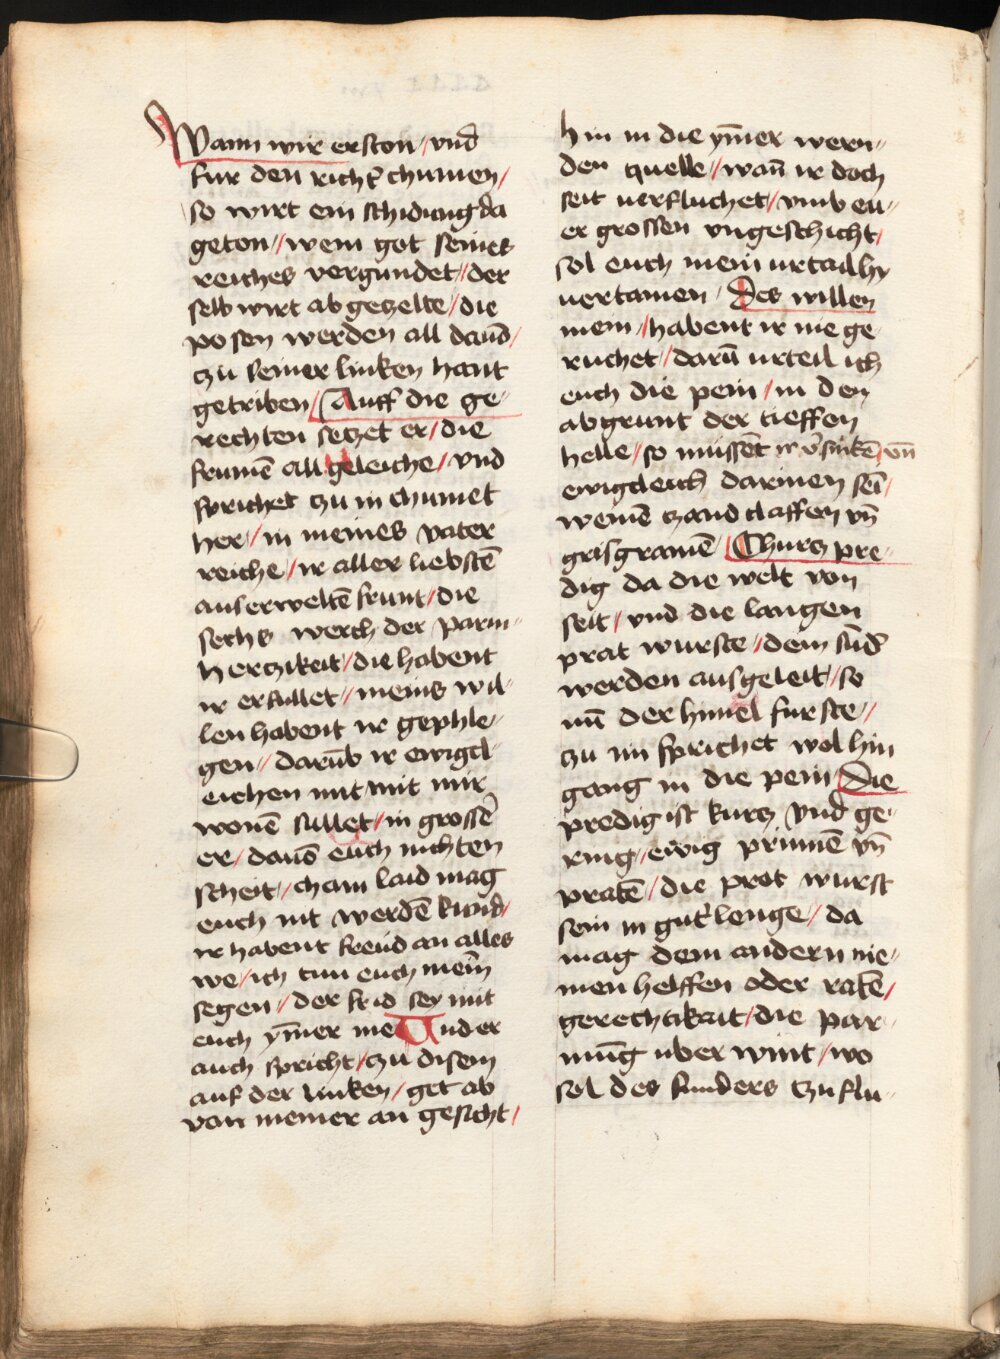 Wann wir erston / vnd
fur den richt̓ chumen /
so wirt ein schidung da
geton // wem got seines
reiches vergundet // der
selb wirt ab geczelte / die
posen werden all dauō /
czu seiner linken hant
getriben / Auff die ge-
rechten seczet er / die
frumē all geleiche / vnd
sprichet czu in chumet
her / in meines vater
reiche / ir aller liebstē
auserweltē frunt / die
sechs werch der parm-
herczikeit / die habent
ir erfullet // meins wil-
len habent ir gephle-
gen // darūb ir ewigcl-
eichen mit mit mir
wonē sullet / in grosser̄
er / dauō euch nichten
scheit / chain laid mag
euch nit werdē kund /
ir habent freud an alles
we / ich tun euch mein̄
segen // der frid sey mit
euch ym̄er me Ander
auch spricht / czu disem
auf der linken / get ab
von meiner an gesicht /
hin in die ym̄er wern-
den quelle // wan̄ ir doch
seit uerfluchet / vmb eu-
er grossen vngeschicht /
sol euch mein urtail hy
uertamen / Des willen
mein / habent ir nie ge
ruchet / darū urteil ich
euch die pein / in den
abgrunt der tieffen
helle / so mussēt ir v̓sinkē / vn̄
ewigcleich darinen sei̅ /
weinē czand claffen vn̄
grisgramē / Churcz pre-
dig da die welt von
seit / vnd die langen
prat wurste / dem sūd̓
werden ausgeleit / so
nū der himel furste //
zu im sprichet wol hin
gang in die pein / Die
predig ist kurcz vnd ge-
ring / ewig prinnē vn̄
pratē / die prot wurst
sein in gut̓ lenge / da
mag dem andern nie-
men helffen oder ratē /
gerechtikait / die par-
mūg uber wint / wo
sol des sunders czu flu-